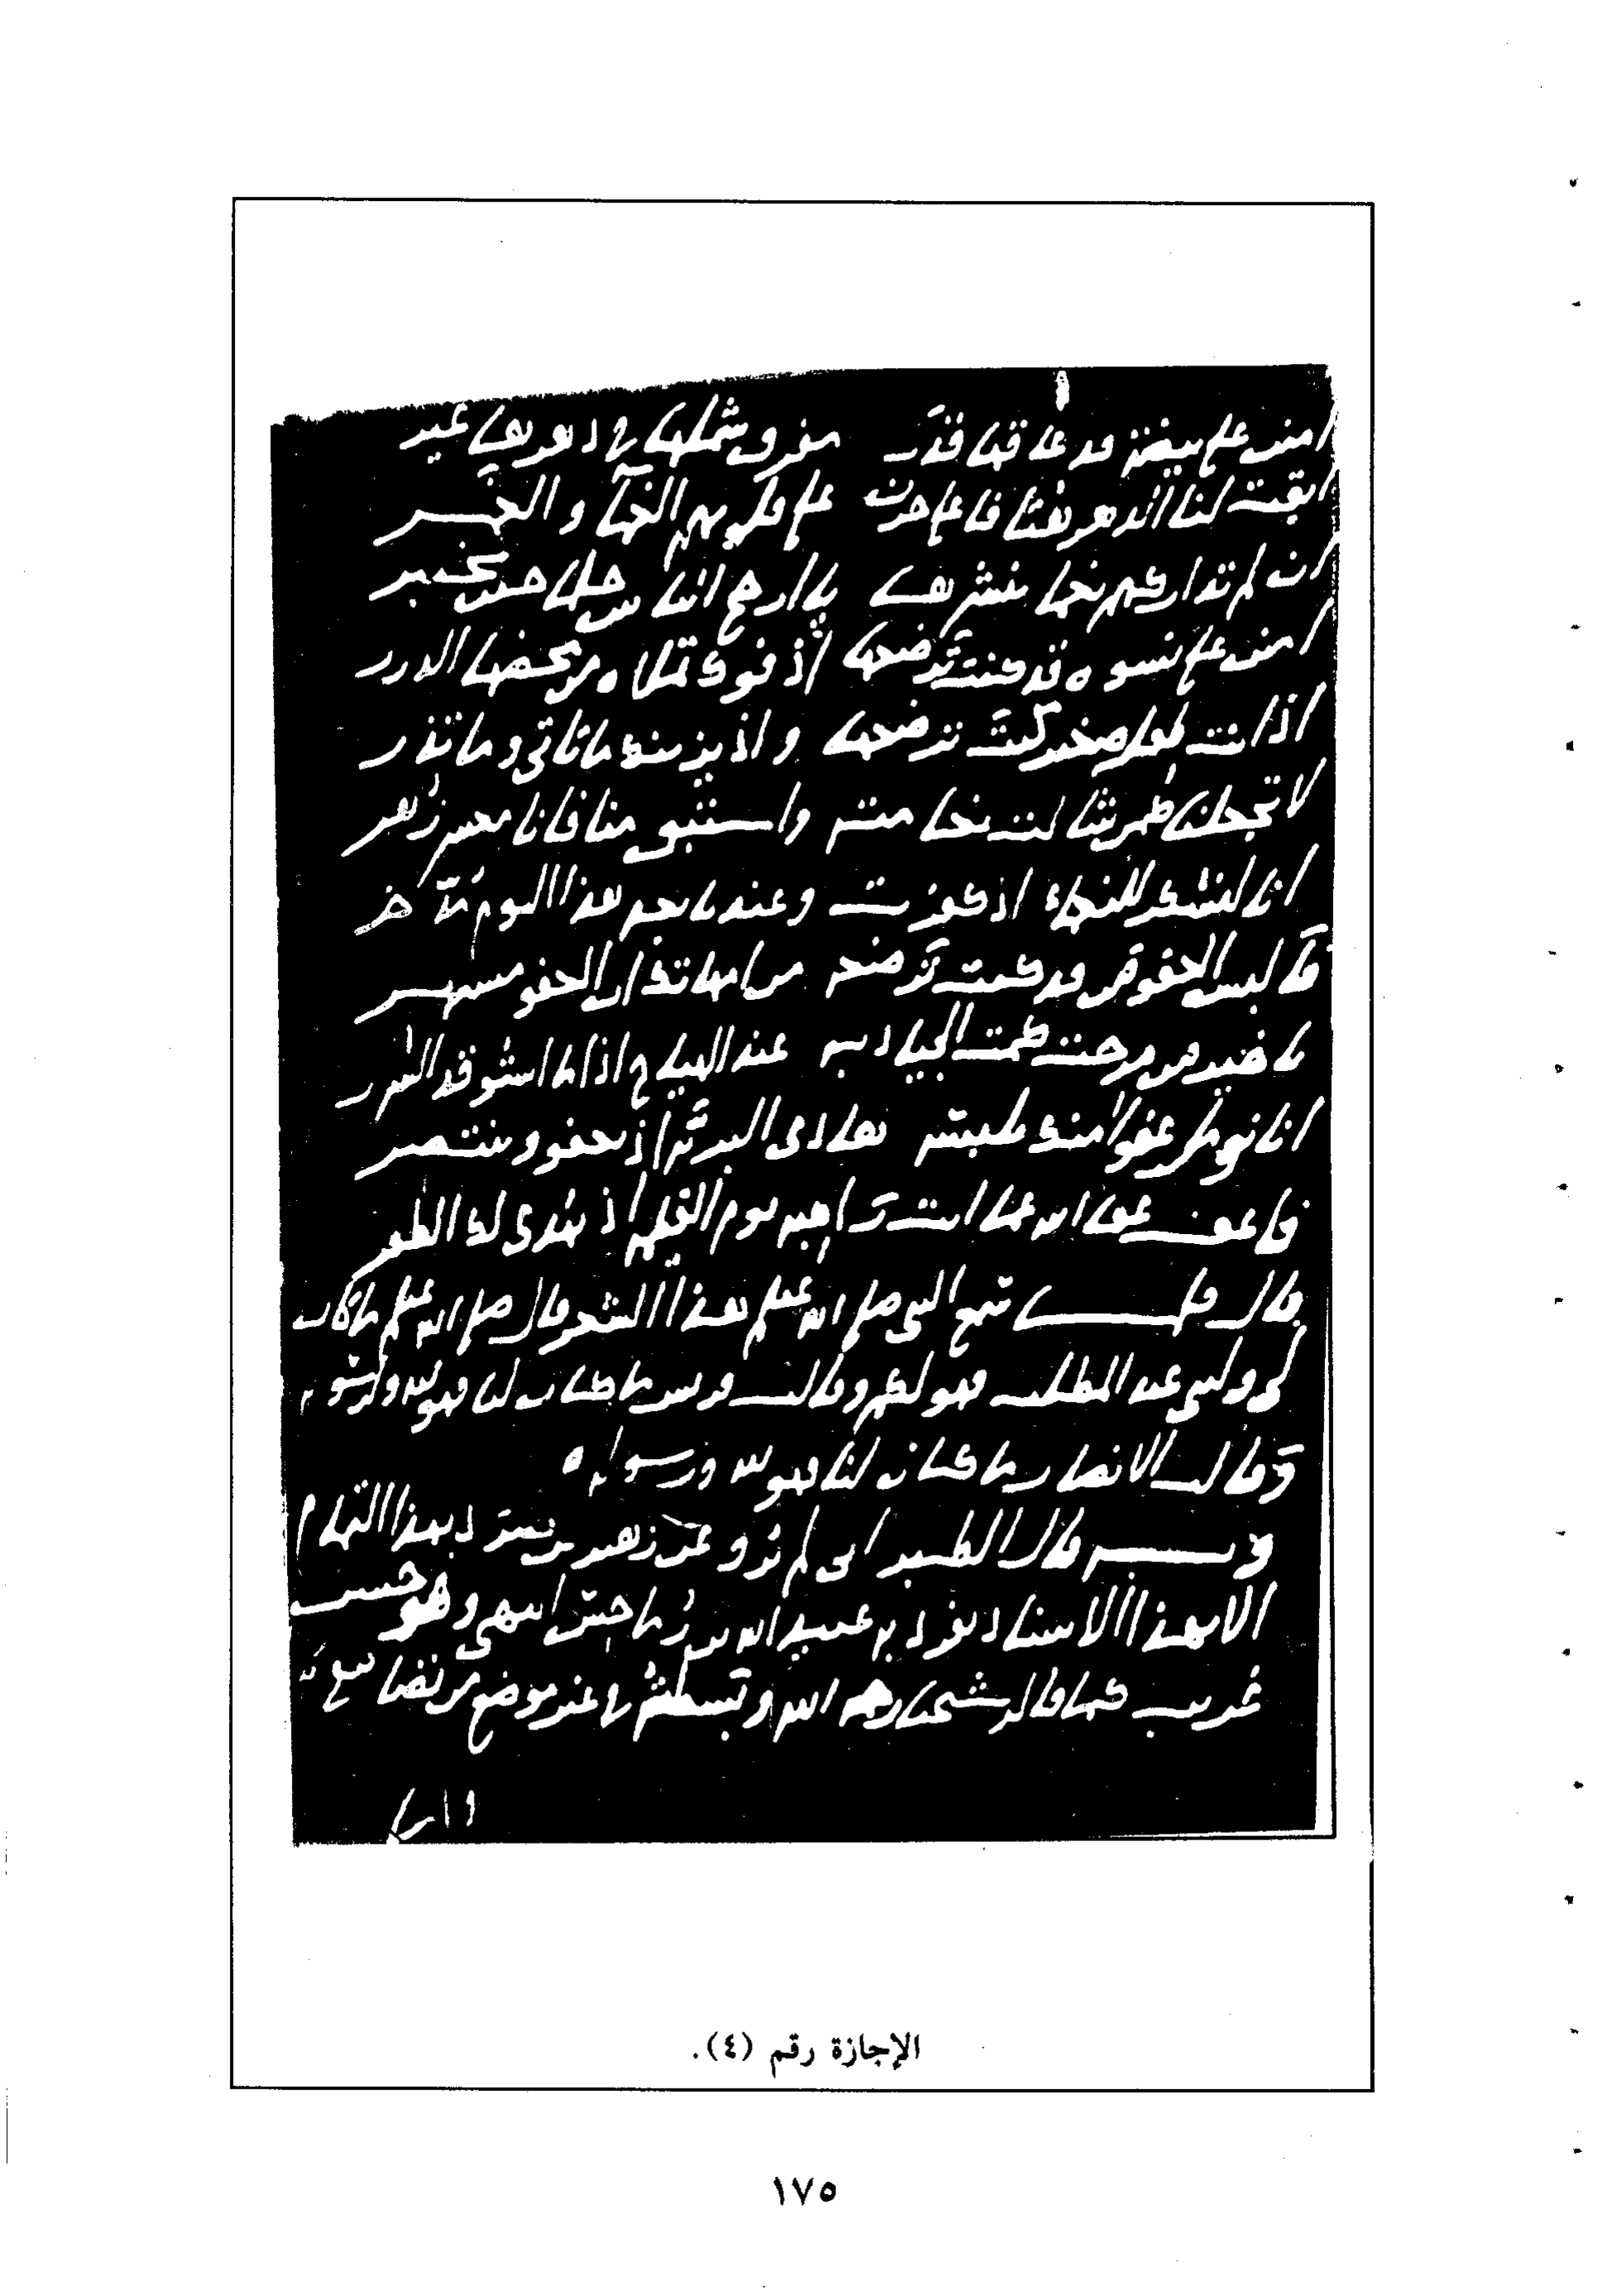 امنن على بيضة قد عاقها قدر مفرق شملها في دهرها غير
ابقت لنا الدهر هتافا على حزن على قلوبهم الغماء والغمر
ان لم تداركهم نعماء تنشرها يا ارجح الناس حلما حين يختبر
امنن على نسوة قد كنت ترضعها اذ فوك تملاه من محضها الدرر
اذ انت طفل صغير كنت ترضعها واذ يزينك ما تاتي وما تذر
لا تجعلنا كمن شالت نعامته واستبق منا فانا معشر زهر
انا لنشكر للنعماء اذ كفرت وعندنا بعد هذا اليوم مدخر
فالبس العفو من قد كنت ترضعه من امهاتك ان العفو مشتهر
يا خير من مرحت كمت الجياد به عند الهياج اذا ما استوقد الشرر
انا نومل عفوا منك تلبسه هادي البرية اذ تعفو وتنتصر
فاعف عفا الله عما انت راهبه يوم القيامة اذ يهدى لك الظفر
قال فلما سمع النبي صلى الله عليه هذا الشعر قال صلى الله عليه ما كان
لي ولبني عبد المطلب فهو لكم وقالت قريش ما كان لنا فهو لله ولرسوله
وقالت الانصار ما كان لنا فهو لله ورسوله ه
وبه قال الطبراني لم يرو عن زهير بن صرد بهذا التمام
الا بهذا الاسناد تفرد به عبيد الله بن رماحس انتهى وهو حسن
غريب كما قال شيخنا رحمه الله وبسطته في غير موضع من تصانيعه
الإجازة رقم (٤).
١٧٥